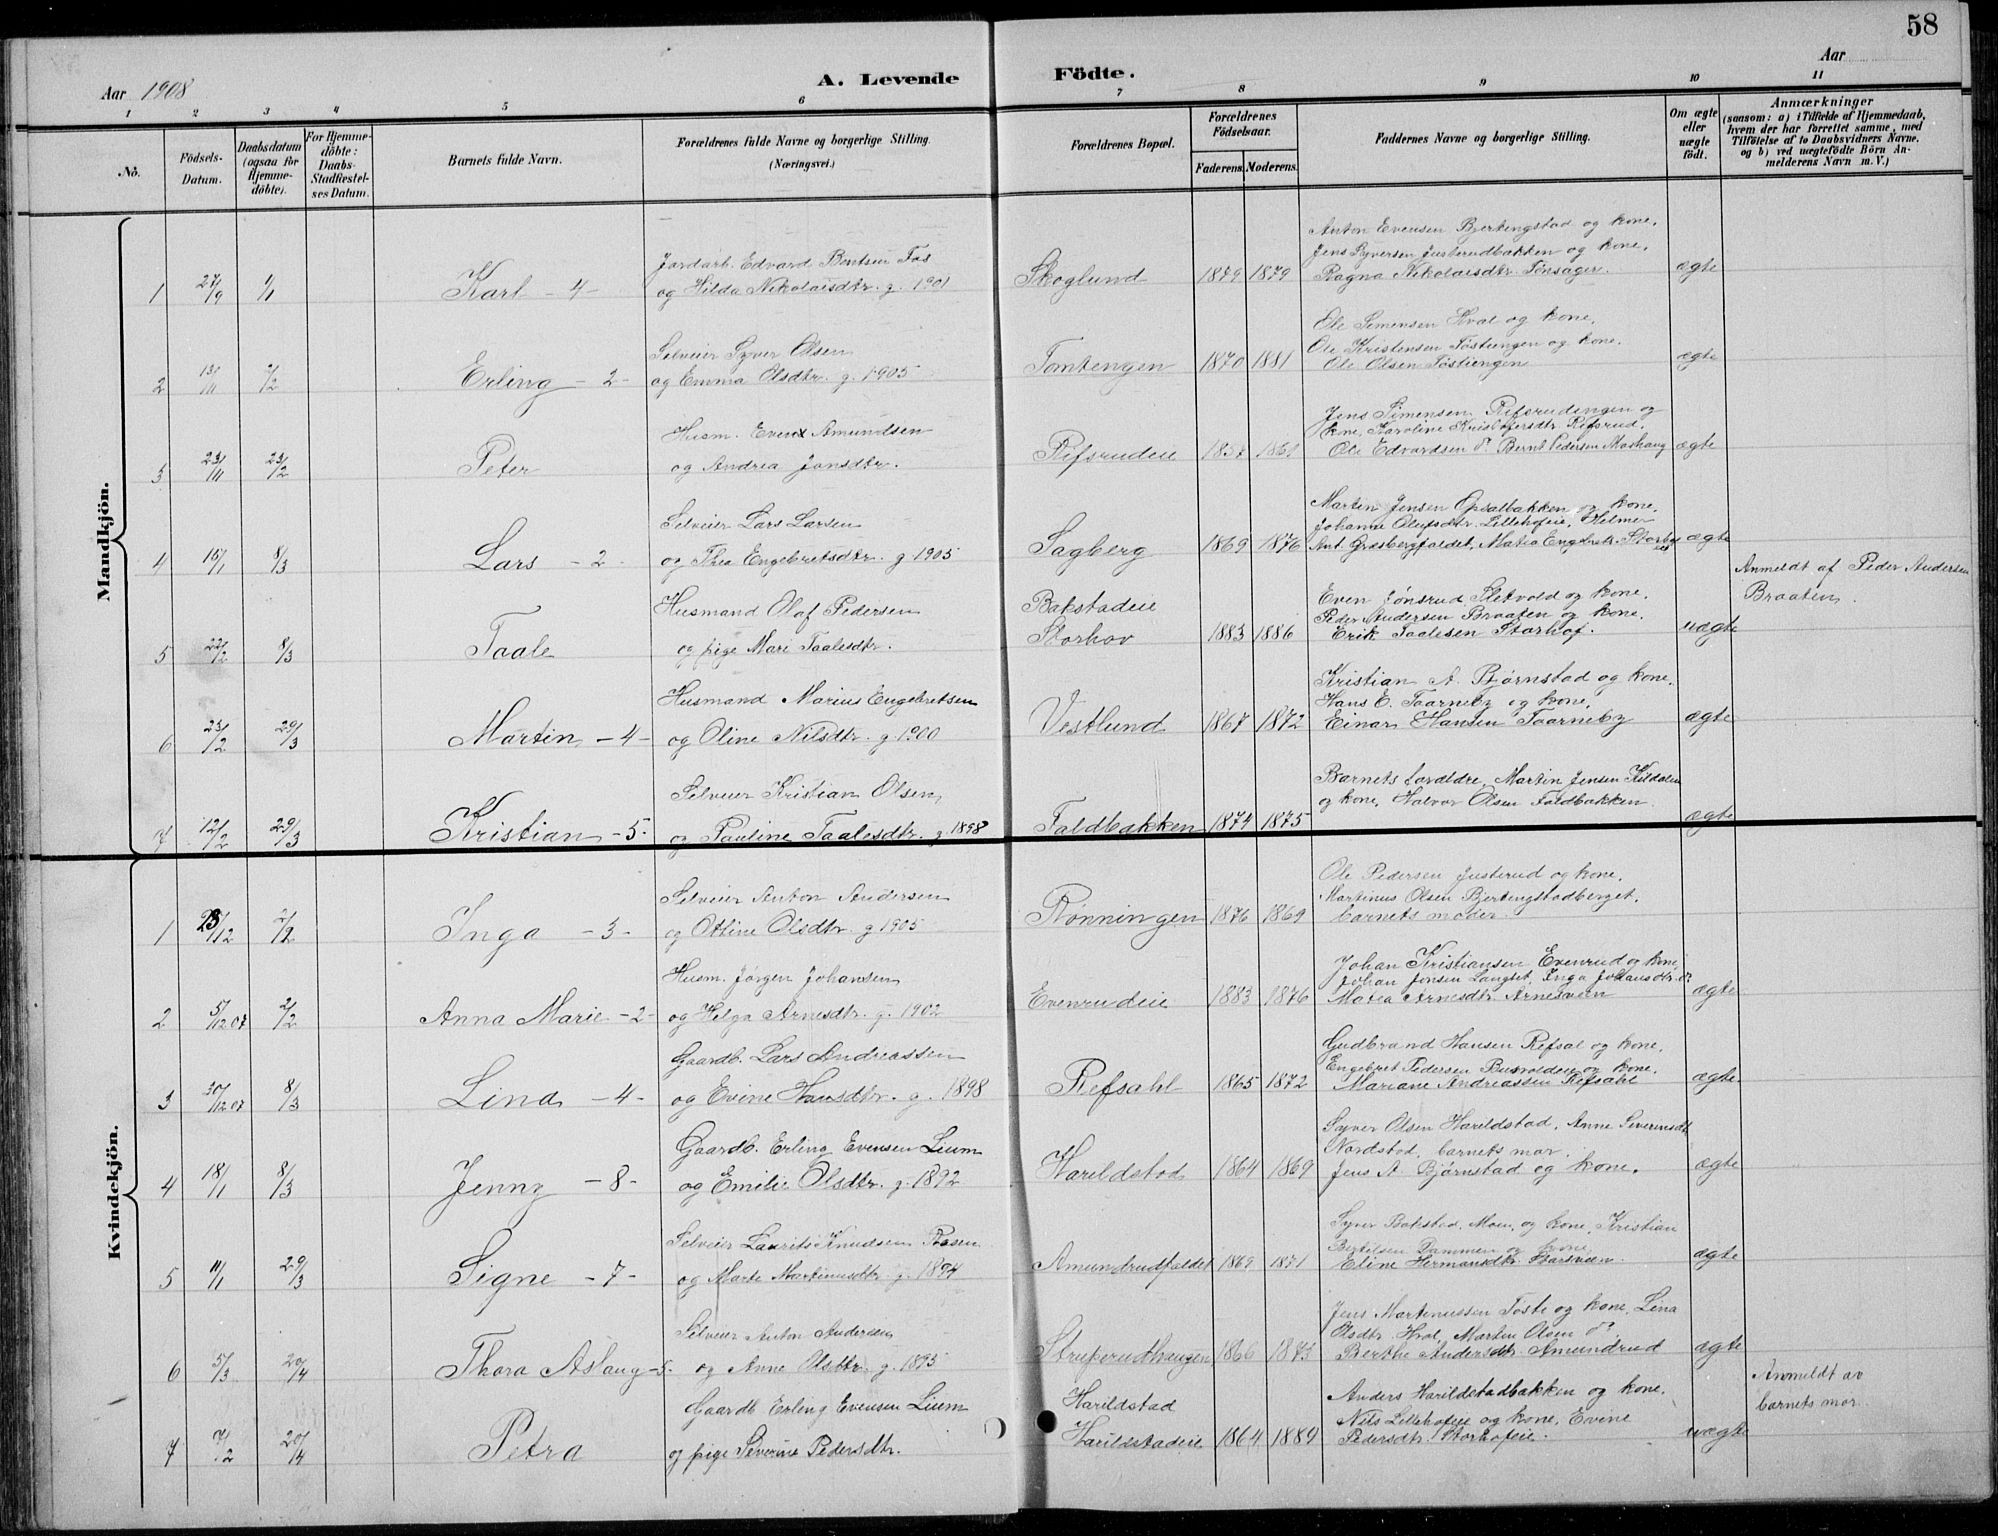 58
Aar 1908
A. Levende Födte.
Aar
1 2 3 4 5 6 7 8 9 10 11
No.
Födsels-Datum.
Daabsdatum (ogsaa for Hjemme-döbte).
For Hjemme-döbte: Daabs-Stadfæstel-ses Datum.
Barnets fulde Navn.
Forældrenes fulde Navne og borgerlige Stilling. (Næringsvei.)
Forældrenes Bopæl.
Forældrenes Födselsaar.
Faderens. Moderens.
Faddernes Navne og borgerlige Stilling.
Om ægte eller uægte födt.
Anmærkninger (saasom: a) i Tilfælde af Hjemmedaab, hvem der har forrettet samme, med Tilföielse af to Daabsvidners Navne. og b) ved uægtefödte Börn An-melderens Navn m. V.)
Mandkjön.
Anton Evensen Bjertengstad og kone.
Jordarb. Edvard Bentsen Fos
Jens Syversen Justerudbakken og kone.
1 27/9 1/1 Karl - 4 - og Hilda Nikolaisdtr. g. 1901 Skoglund 1879 1879 Ragna Nikolaisdtr. Tønsager. ægte
Ole Simensen Hval og kone.
Selveier Syver Olsen
Ole Kristensen Tøstiengen og kone.
2 13/11 2/2 Erling - 2 - og Emma Olsdtr. g. 1905 Tomtengen 1870 1881 Ole Olsen Tøstiengen ægte
Jens Simensen Refsrudengen og
Husm. Even Amundsen
kone, Karoline Kristofersdtr Refsrud.
3 23/11 23/2 Peter og Andrea Jonsdtr. Refsrudeie 1857 1861 Ole Edvardsen do. Bernt Pedersen Mashaug ægte
Martin Jensen Opsalbakken og kone.
Selveier Lars Larsen
Johanne Olufsdtr. Lillehofeie, Helmer
4 16/1 8/3 Lars - 2 - og Thea Engebretsdtr. g 1905 Sagberg 1869 1876 Ant. Græsbergfaldet, Matea Engebrets. ægte
Anmeldt af Peder Andersen
Husmand Olaf Pedersen Bakstadeie
Even Jønsrud Sletvold og kone.
Braaten.
Peder Andersen Braaten og kone.
5 22/2 8/3 Taale og pige Mari Taalesdtr. Storhov 1883 1886 Erik Taalesen Storhof. uægte
Kristian A. Bjørnstad og kone.
Husmand Marius Engebretsen
Hans E. Taarneby og kone.
6 23/2 29/3 Martin - 4 - og Oline Nilsdtr. g 1900 Vestlund 1867 1872 Einar Hansen Taarneby ægte
Barnets forældre, Martin Jensen Kildalen
Selveier Kristian Olsen
og kone, Halvor Olsen Faldbakken.
7 12/2 29/3 Kristian - 5 - og Pauline Taalesdtr. g. 1898 Faldbakken 1874 1875 ægte
Kvindekjön.
Ole Pedersen Justerud og kone.
Selveier Anton Andersen
Martinus Olsen Bjertengstadberget.
1 23/12 2/2 Inga - 3 - og Otline Olsdtr. g 1905 Rønningen 1876 1869 barnets moder.
Johan Kristiansen Evenrud og kone
Husm. Jørgen Johansen
Johan Jensen Langset, Inga Johansdtr. do.
2 5/12 07 2/2 Anna Marie - 2 - og Helga Arnesdtr. g. 1902 Evenrudeie 1883 1876 Matea Arnesdtr. Arnesveen ægte
Gudbrand Hansen Refsal og kone.
Gaardb. Lars Andreassen
Engebret Pedersen og kone.
3 30/12 07 8/3 Lina - 4 - og Evine Hansdtr. g. 1898 Refsahl 1865 1872 Mariane Andreassen Refsahl ægte
Syver Olsen Harildstad, Anne Severinsdtr.
Gaardb. Erling Evensen Lium
Nordstad, barnets mor.
4 18/1 8/3 Jenny - 8 - og Emilie Olsdtr. g. 1892 Harildstad 1864 1869 Jens A. Bjørnstad og kone. ægte
Syver Bakstad, Moen, og kone, Kristian
Selveier Laurits Knudsen Rosen
Bertelsen Dammen og kone,
5 11/1 29/3 Signe - 7 - og Marte Martinusdtr. g. 1894 Amundrudfaldet 1869 1871 Eline Hermansdtr. ægte
Jens Martinussen Toste og kone, Lina
Selveier Anton Andersen
Olsdtr. Hval, Martin Olsen do.
6 5/3 20/4 Thora Aslaug - 5 - og Anne Olsdtr. g. 1895 Struperudhaugen 1866 1873 Berthe Andersdtr. Amundrud ægte
Anmeldt av
Gaardb. Erling Evensen Lium Harildstad
Anders Harildstadbakken og kone.
barnets mor.
Nils Lillehofeie og kone, Evine
7 7/2 20/4 Petra og pige Severine Pedersdtr. Harildstadeie 1864 1889 Pedersdtr. Storhofeie. uægte